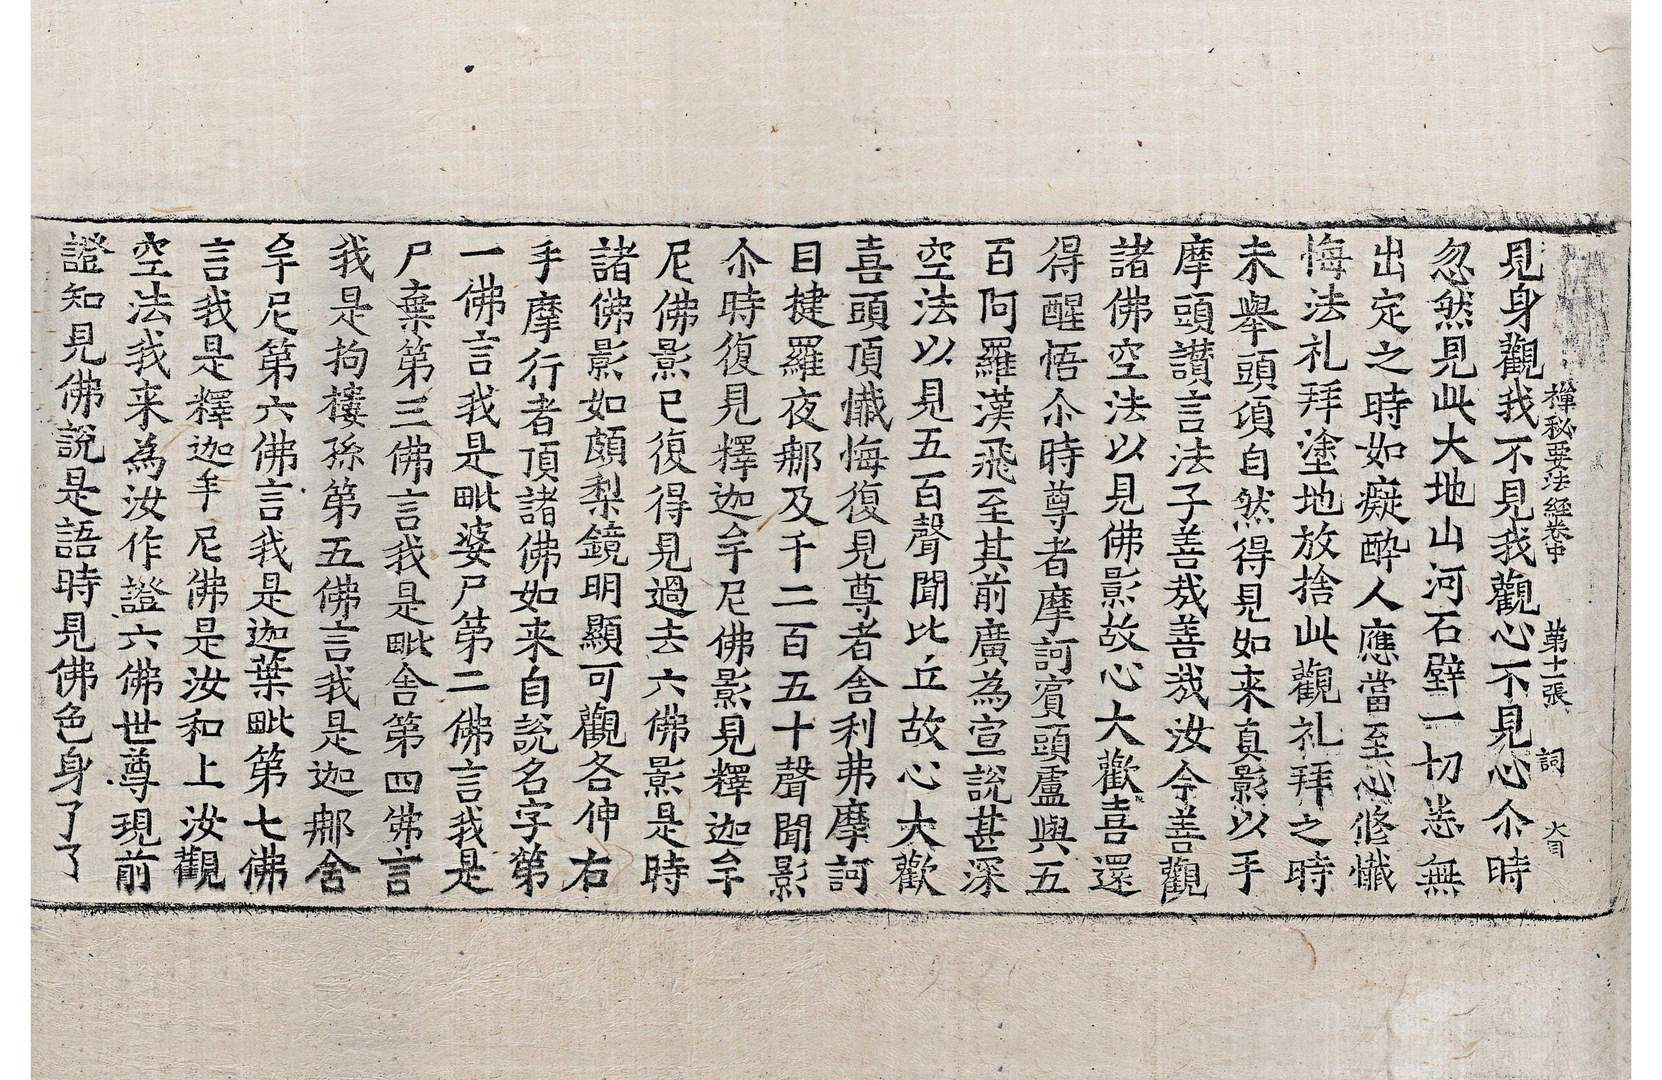 禪秘要法經卷中 第十一張 詞 大目
見身觀我不見我觀心不見心尒時
忽然見此大地山河石壁一切恙無
出定之時如癡醉人應當至心修懺
悔法礼拜塗地放捨此觀礼拜之時
未舉頭頃自然得見如来真影以手
摩頭讃言法子善哉善哉汝今善觀
諸佛空法以見佛影故心大歡喜還
得醒悟尒時尊者摩訶賔頭盧與五
百阿羅漢飛至其前廣為宣說甚深
空法以見五百聲聞比丘故心大歡
喜頭頂懺悔復見尊者舎利弗摩訶
目揵羅夜那及千二百五十聲聞影
尒時復見釋迦牟尼佛影見釋迦牟
尼佛影已復得見過去六佛影是時
諸佛影如頗梨鏡明顯可觀各伸右
手摩行者頂諸佛如来自說名字第
一佛言我是毗婆尸第二佛言我是
尸棄第三佛言我是毗舎第四佛言
我是拘樓孫第五佛言我是迦那舎
牟尼第六佛言我是迦葉毗第七佛
言我是釋迦牟尼佛是汝和上汝觀
空法我来為汝作證六佛世尊現前
證知見佛說是語時見佛色身了了